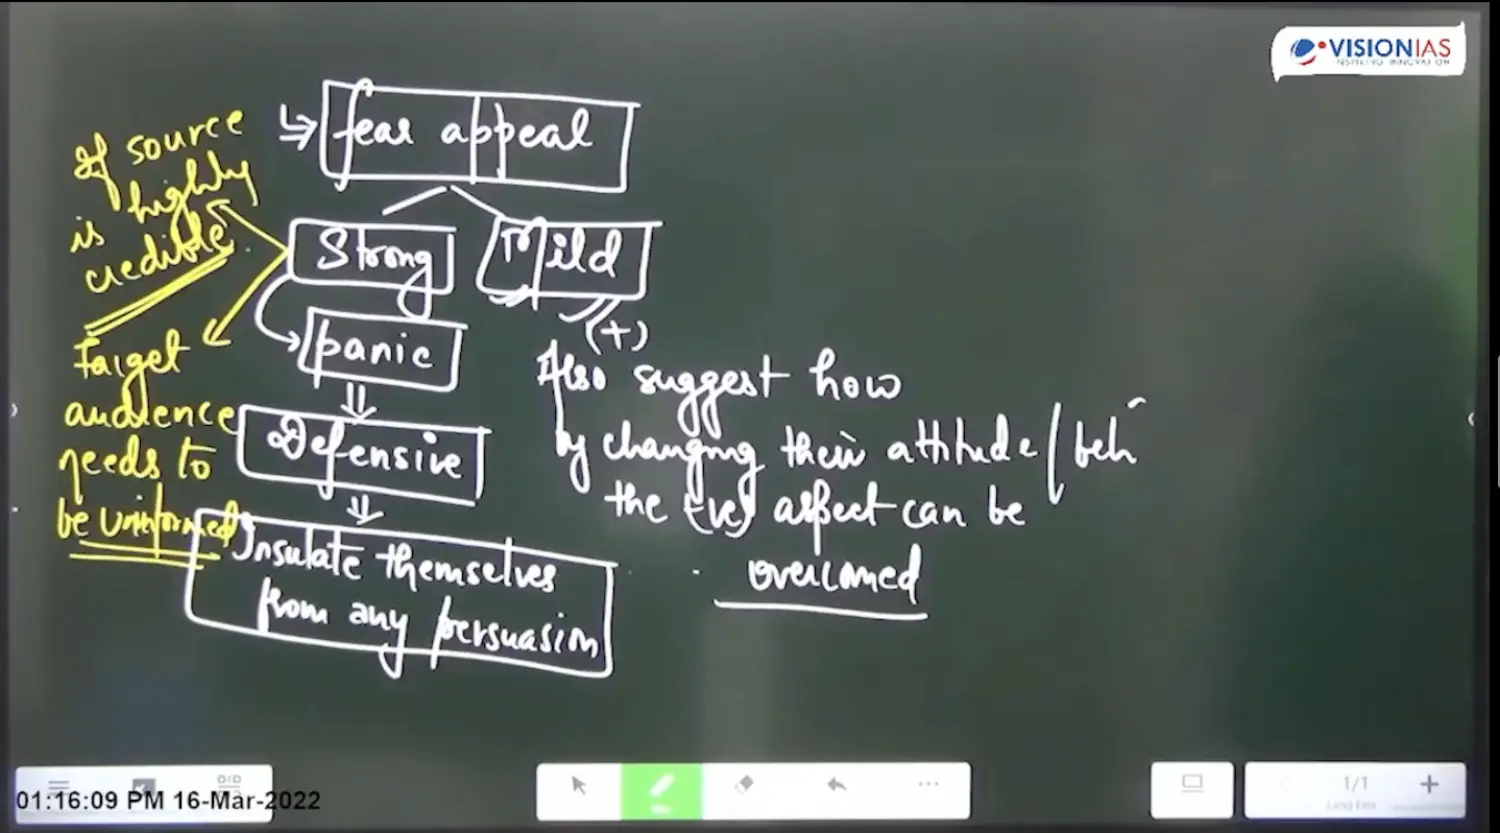 VISIONIAS
INSPIRING INNOVATION
fear appeal
If source
is highly
credible
Strong
Mild
(+)
panic
Target
audience
needs to
be uninformed
Defensive
Insulate themselves
from any persuasion
Also suggest how
by changing their attitude/beh
the (-ve) aspect can be
overcomed
01:16:09 PM 16-Mar-2022
1/1